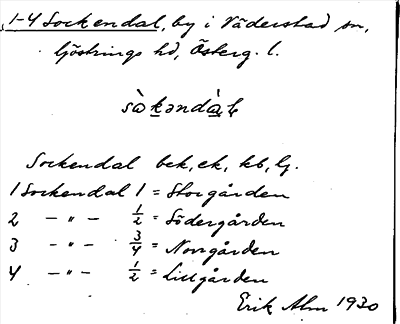 1-4 Sockendal, by i Väderstad sn,
Göstrings hd, Österg. l.
sò̀kəndàl
Sockendal bck, ek, kb, lj.
1 Sockendal 1 = Storgården
2 – " – 1/2 = Södergården
3 – " – 3/4 = Norrgården
4 – " – 1/2 = Lillgården
Erik Alm 1930